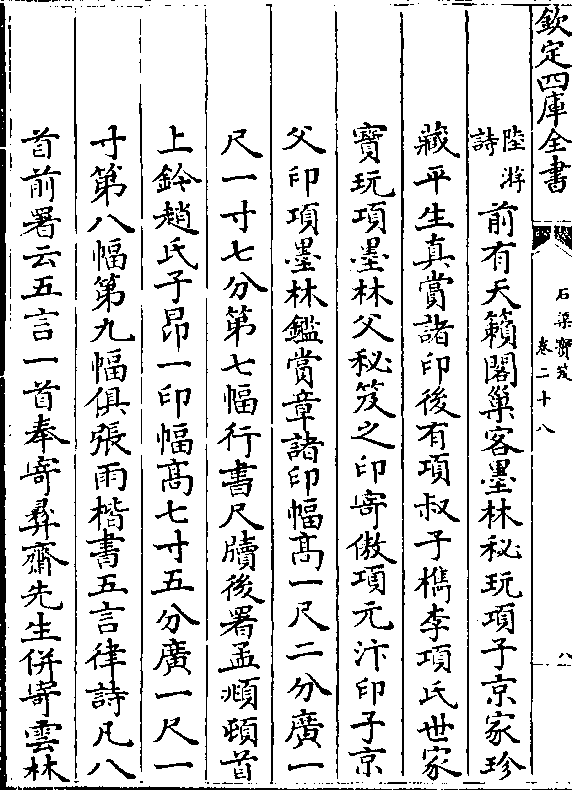 欽定四庫全書
石渠寳笈
卷二十八
八
陸游
詩
前有天籟閣巢客墨林秘玩項子京家珍
藏平生真賞諸印後有項叔子檇李項氏世家
寳玩項墨林父秘笈之印寄傲項元汴印子京
父印項墨林鑑賞章諸印幅髙一尺二分廣一
尺一寸七分第七幅行書尺牘後署孟頫頓首
上鈐趙氏子昂一印幅髙七寸五分廣一尺一
寸第八幅第九幅俱張雨楷書五言律詩凡八
首前署云五言一首奉寄彞齋先生併寄雲林